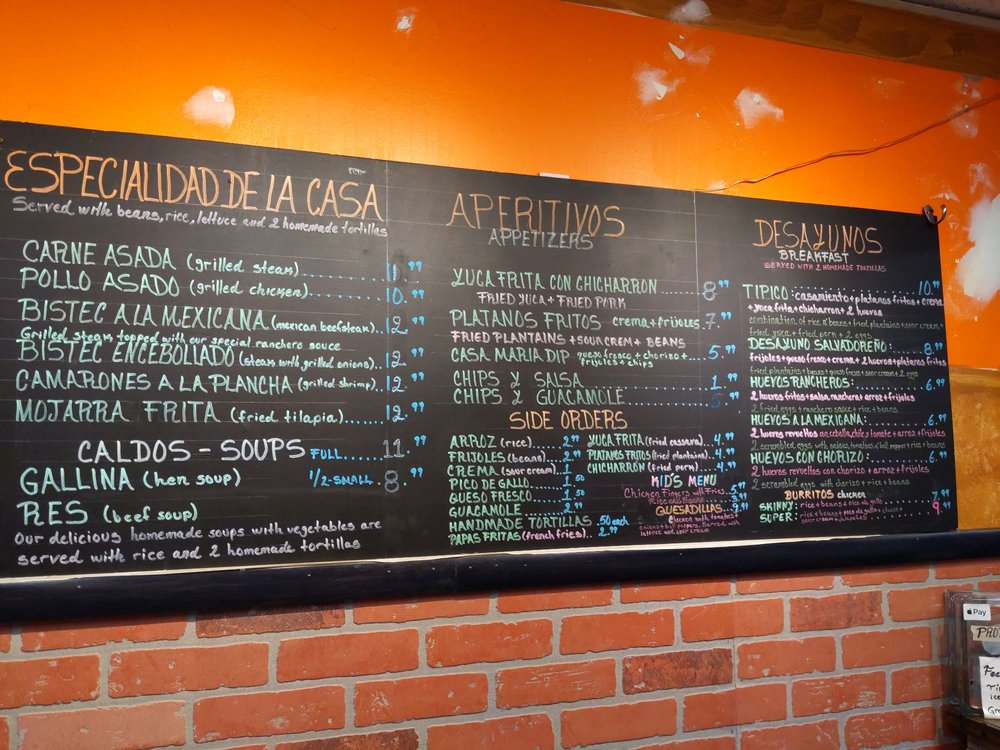 ESPECIALIDAD DE LA CASA
Served with beans, rice, lettuce and 2 homemade tortillas
CARNE ASADA (grilled steak)........11.99
POLLO ASADO (grilled chicken)........10.99
BISTEC A LA MEXICANA (mexican beefsteak)..12.99
Grilled steak topped with our special ranchero sauce
BISTEC ENCEBOLLADO (steak with grilled onions)..12.99
CAMARONES A LA PLANCHA (grilled shrimp)...12.99
MOJARRA FRITA (fried tilapia)........12.99
CALDOS - SOUPS FULL.....11.99
GALLINA (hen soup) 1/2-SMALL...8.99
RES (beef soup)
Our delicious homemade soups with vegetables are
served with rice and 2 homemade tortillas
APERITIVOS
APPETIZERS
YUCA FRITA CON CHICHARRON......8.99
FRIED YUCA + FRIED PORK
PLATANOS FRITOS crema + frijoles..7.99
FRIED PLANTAINS + SOUR CREM + BEANS
CASA MARIA DIP queso fresco + chorizo +....5.99
frijoles + chips
CHIPS Y SALSA..............1.99
CHIPS Y GUACAMOLE..........5.99
SIDE ORDERS
ARROZ (rice)......2.99
FRIJOLES (beans)....2.99
CREMA (sour cream)..1.50
PICO DE GALLO......1.50
QUESO FRESCO......1.50
GUACAMOLE........2.99
HANDMADE TORTILLAS .50 each
PAPAS FRITAS (french fries)..2.99
YUCA FRITA (fried cassava)..4.99
PLATANOS FRITOS (fried plantains)..4.99
CHICHARRÓN (fried pork)...4.99
KID'S MENU
Chicken Fingers with Fries
Rice and Beans
QUESADILLAS
Chicken with tomatoes
onions + bell peppers. Served with
lettuce and sour cream
DESAYUNOS
BREAKFAST
SERVED WITH 2 HOMEMADE TORTILLAS
TIPICO: casamiento + platanos fritos + crema 10.99
+ yuca frita + chicharron + 2 huevos
combination of rice & beans + fried plantains + sour cream +
fried yuca + fried pork + 2 eggs
DESAYUNO SALVADOREÑO:........8.99
frijoles + queso fresco + crema + 2 huevos + platanos fritos
fried plantains + beans + queso fresco + sour cream + 2 eggs
HUEVOS RANCHEROS:..........6.99
2 huevos fritos + salsa ranchera + arroz + frijoles
2 fried eggs + ranchero sauce + rice + beans
HUEVOS A LA MEXICANA:........6.99
2 huevos revueltos con cebolla, chile, y tomate + arroz + frijoles
2 scrambled eggs with onions, tomatoes & bell pepper + rice + beans
HUEVOS CON CHORIZO:........6.99
2 huevos revueltos con chorizo + arroz + frijoles
2 scrambled eggs with chorizo + rice + beans
BURRITOS chicken
SKINNY: rice + beans + pico de gallo + chicken 7.99
SUPER: rice + beans + pico de gallo + chicken 9.99
sour cream + jalapeños
Pay